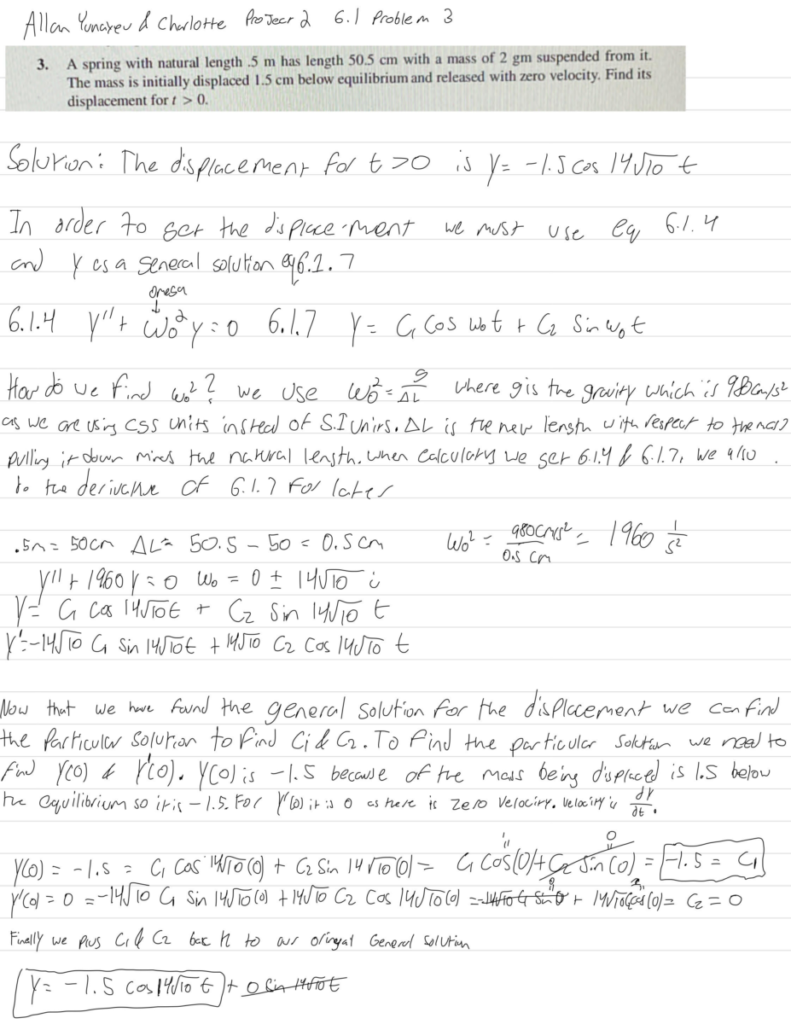 Allan Yunayev & Charlotte Project 2 6.1 Problem 3
3. A spring with natural length .5 m has length 50.5 cm with a mass of 2 gm suspended from it.
The mass is initially displaced 1.5 cm below equilibrium and released with zero velocity. Find its
displacement for t > 0.
Solution: The displacement for t>0 is y= -1.5 cos 14√10 t
In order to get the displacement we must use eq 6.1.4
and y as a general solution eq 6.1.7
omega
↓
6.1.4 y''+ ω₀²y=0 6.1.7 y= C₁ cos ω₀t + C₂ sin ω₀t
How do we find ω₀²? we use ω₀²= g/ΔL where g is the gravity which is 980cm/s²
as we are using CGS units instead of S.I Units. ΔL is the new length with respect to the mass
pulling it down minus the natural length. when calculating we get 6.1.4 & 6.1.7, we also
do the derivative of 6.1.7 for later
.5m = 50cm ΔL= 50.5 - 50 = 0.5cm ω₀² = 980cm/s²/0.5 cm = 1960 1/s²
y''+1960y=0 ω₀ = 0 ± 14√10 i
y= C₁ cos 14√10t + C₂ sin 14√10 t
y'=-14√10 C₁ sin 14√10t + 14√10 C₂ cos 14√10 t
Now that we have found the general solution for the displacement we can find
the particular solution to find C₁ & C₂. To find the particular solution we need to
find y(0) & y'(0). y(0) is -1.5 because of the mass being displaced is 1.5 below
the equilibrium so it is -1.5. For y'(0) it is 0 as there is zero velocity. velocity is dy/dt.
y(0) = -1.5 = C₁ cos 14√10(0) + C₂ sin 14√10(0) = C₁ cos(0)+C₂ sin(0) = -1.5 = C₁
y'(0) = 0 = -14√10 C₁ sin 14√10(0) + 14√10 C₂ cos 14√10(0) = -14√10 C₁ sin 0 + 14√10 C₂ cos(0) = C₂ = 0
Finally we plug C₁ & C₂ back in to our original General solution
y= -1.5 cos 14√10 t + 0 sin 14√10 t